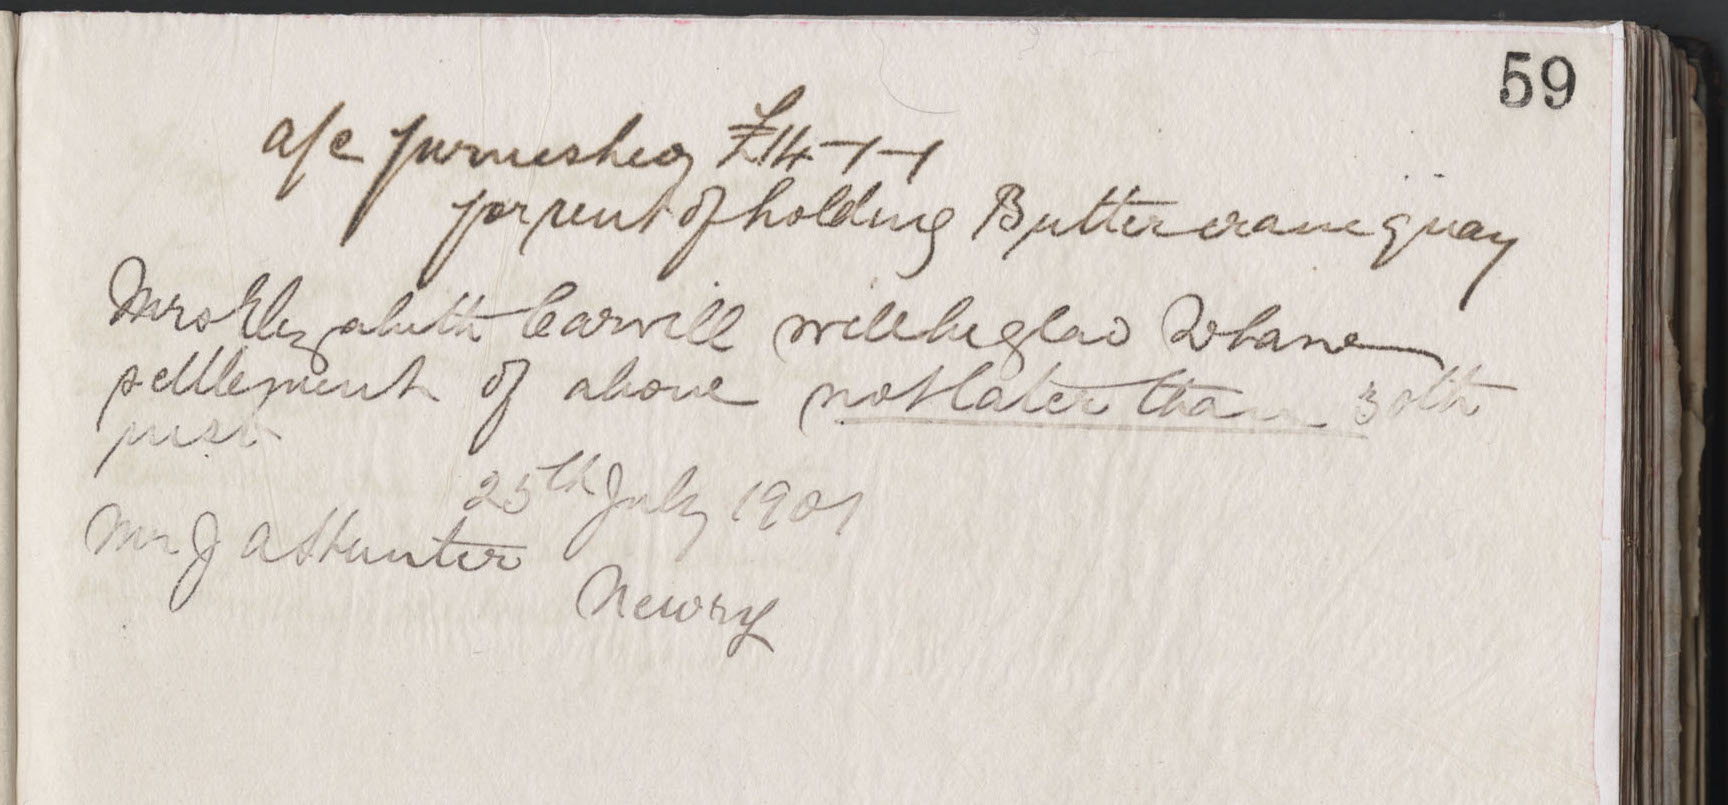 59
a/c furnished £14-1-1
for rent of holding Buttercrane quay
Mrs Elizabeth Carvill will be glad to have
settlement of above not later than 30th
inst
25th July 1901
Mr J A Hunter
Newry